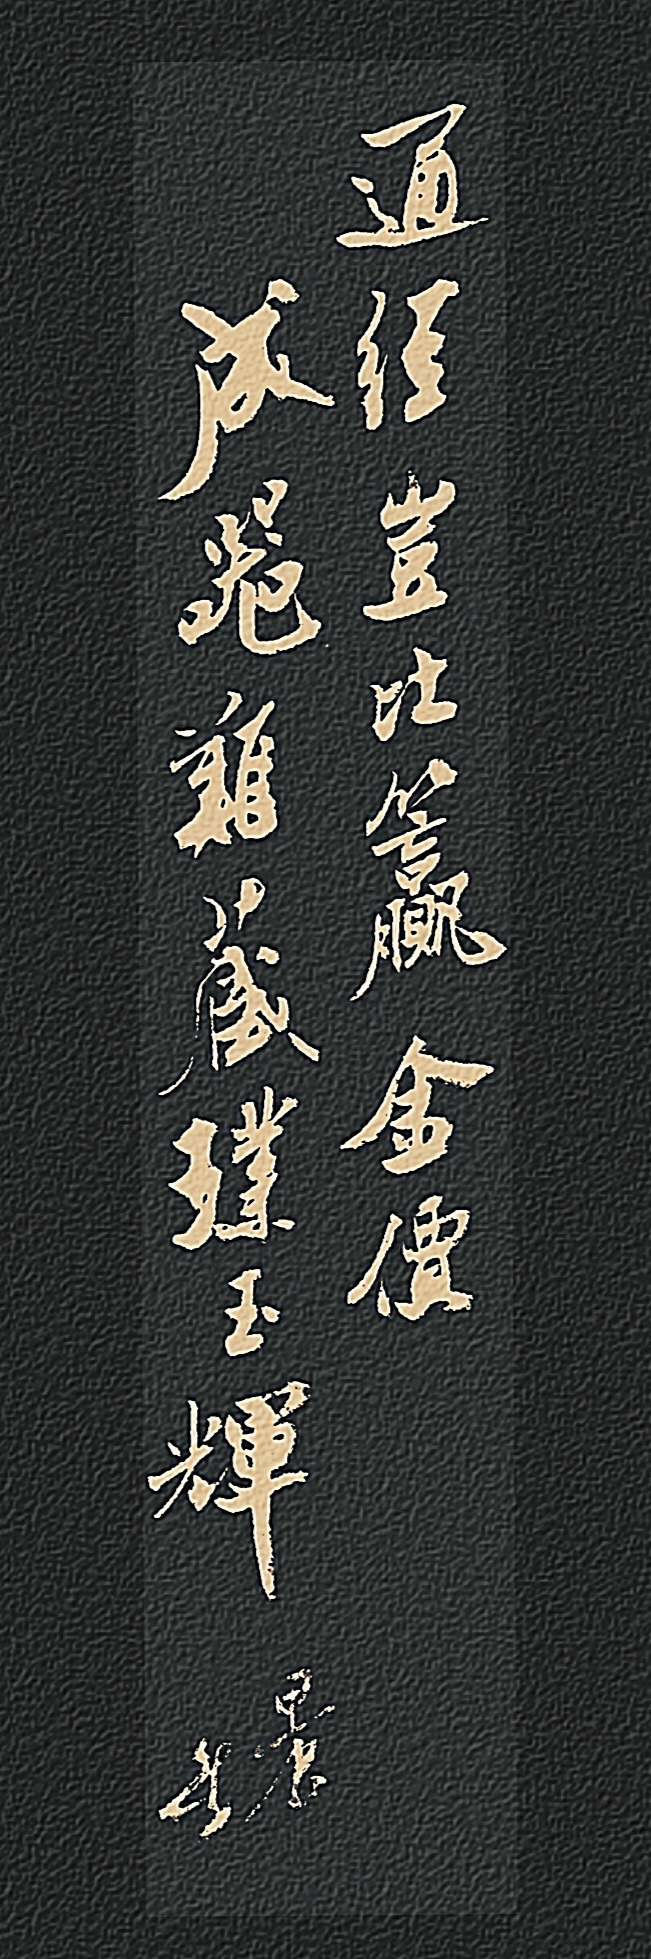 通經豈比籝金價
成器難藏璞玉輝